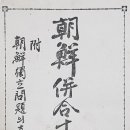 朝鮮併合十
附
朝鮮獨立問題의